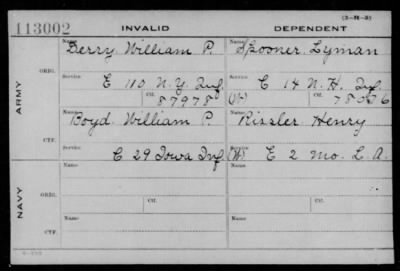 (3-H-3)
113002 INVALID DEPENDENT
ARMY
ORIG.
Name Derry William P. Name Spooner Lyman
Service E 110 N.Y. Inf. Service C 14 N.H. Inf.
Ctf. 87978 (W) Ctf.
CTF.
Name Boyd William P. Name Rissler Henry
Service C 29 Iowa Inf. Service (W) E 2 Mo. L.A.
NAVY
ORIG.
Name Name
Service Ctf. Service Ctf.
CTF.
Name Name
Service Service